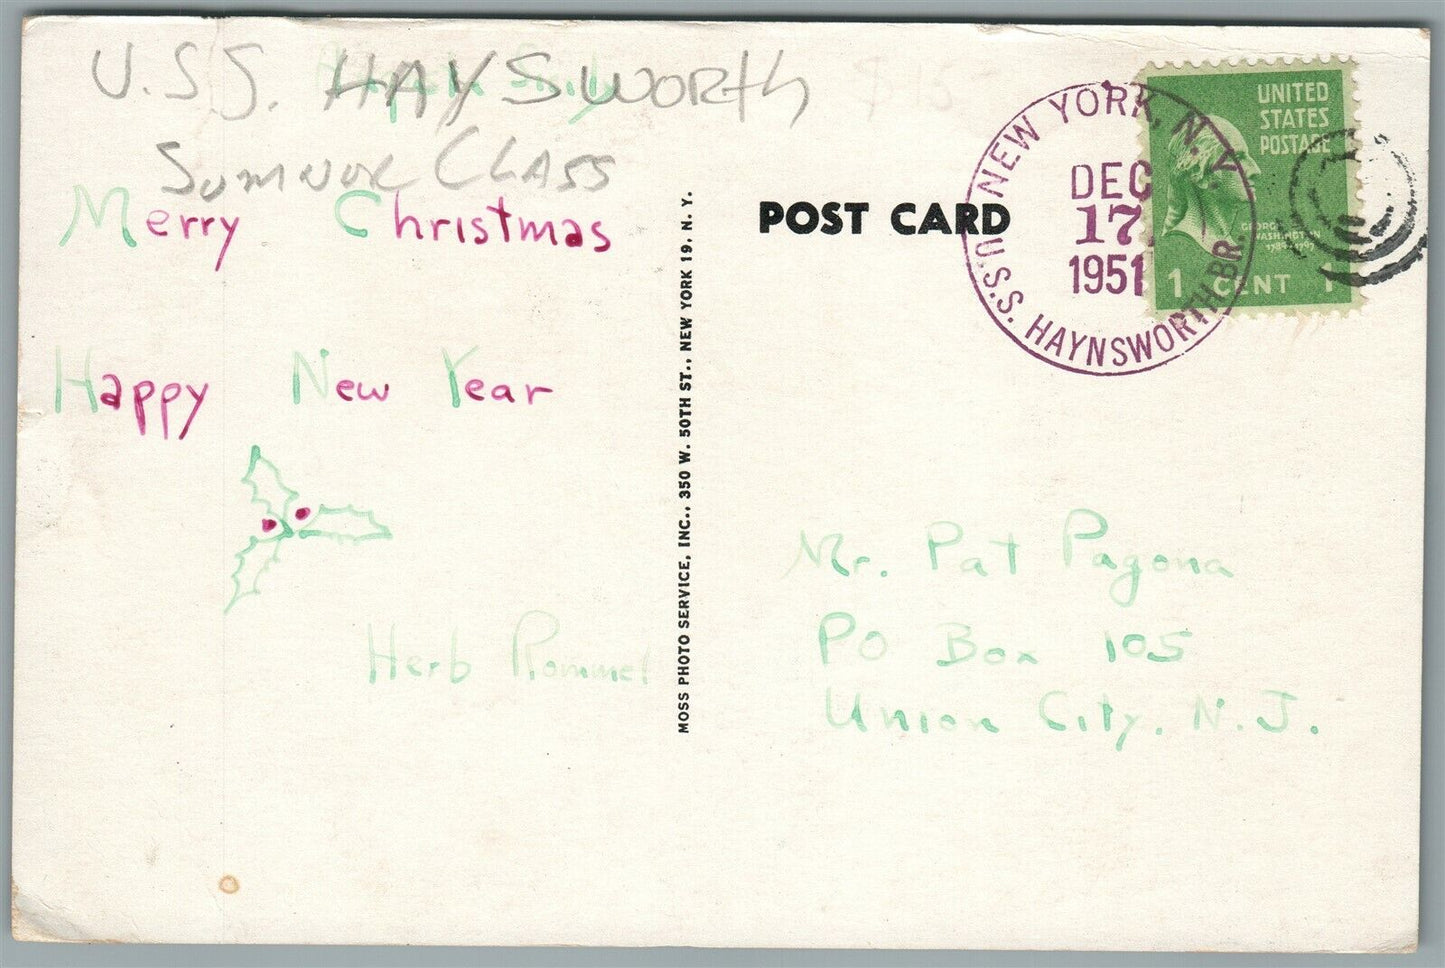 U.S.S. HAYSWORTH
SUMNUR CLASS
Merry Christmas
Happy New Year
Herb Rommel
MOSS PHOTO SERVICE, INC., 350 W. 50TH ST., NEW YORK 19, N. Y.
POST CARD
NEW YORK, N.Y.
DEC
17
1951
U.S.S. HAYNSWORTH BR.
UNITED
STATES
POSTAGE
GEORGE
WASHINGTON
1789-1797
1 CENT 1
Mr. Pat Pagona
PO Box 105
Union City, N.J.